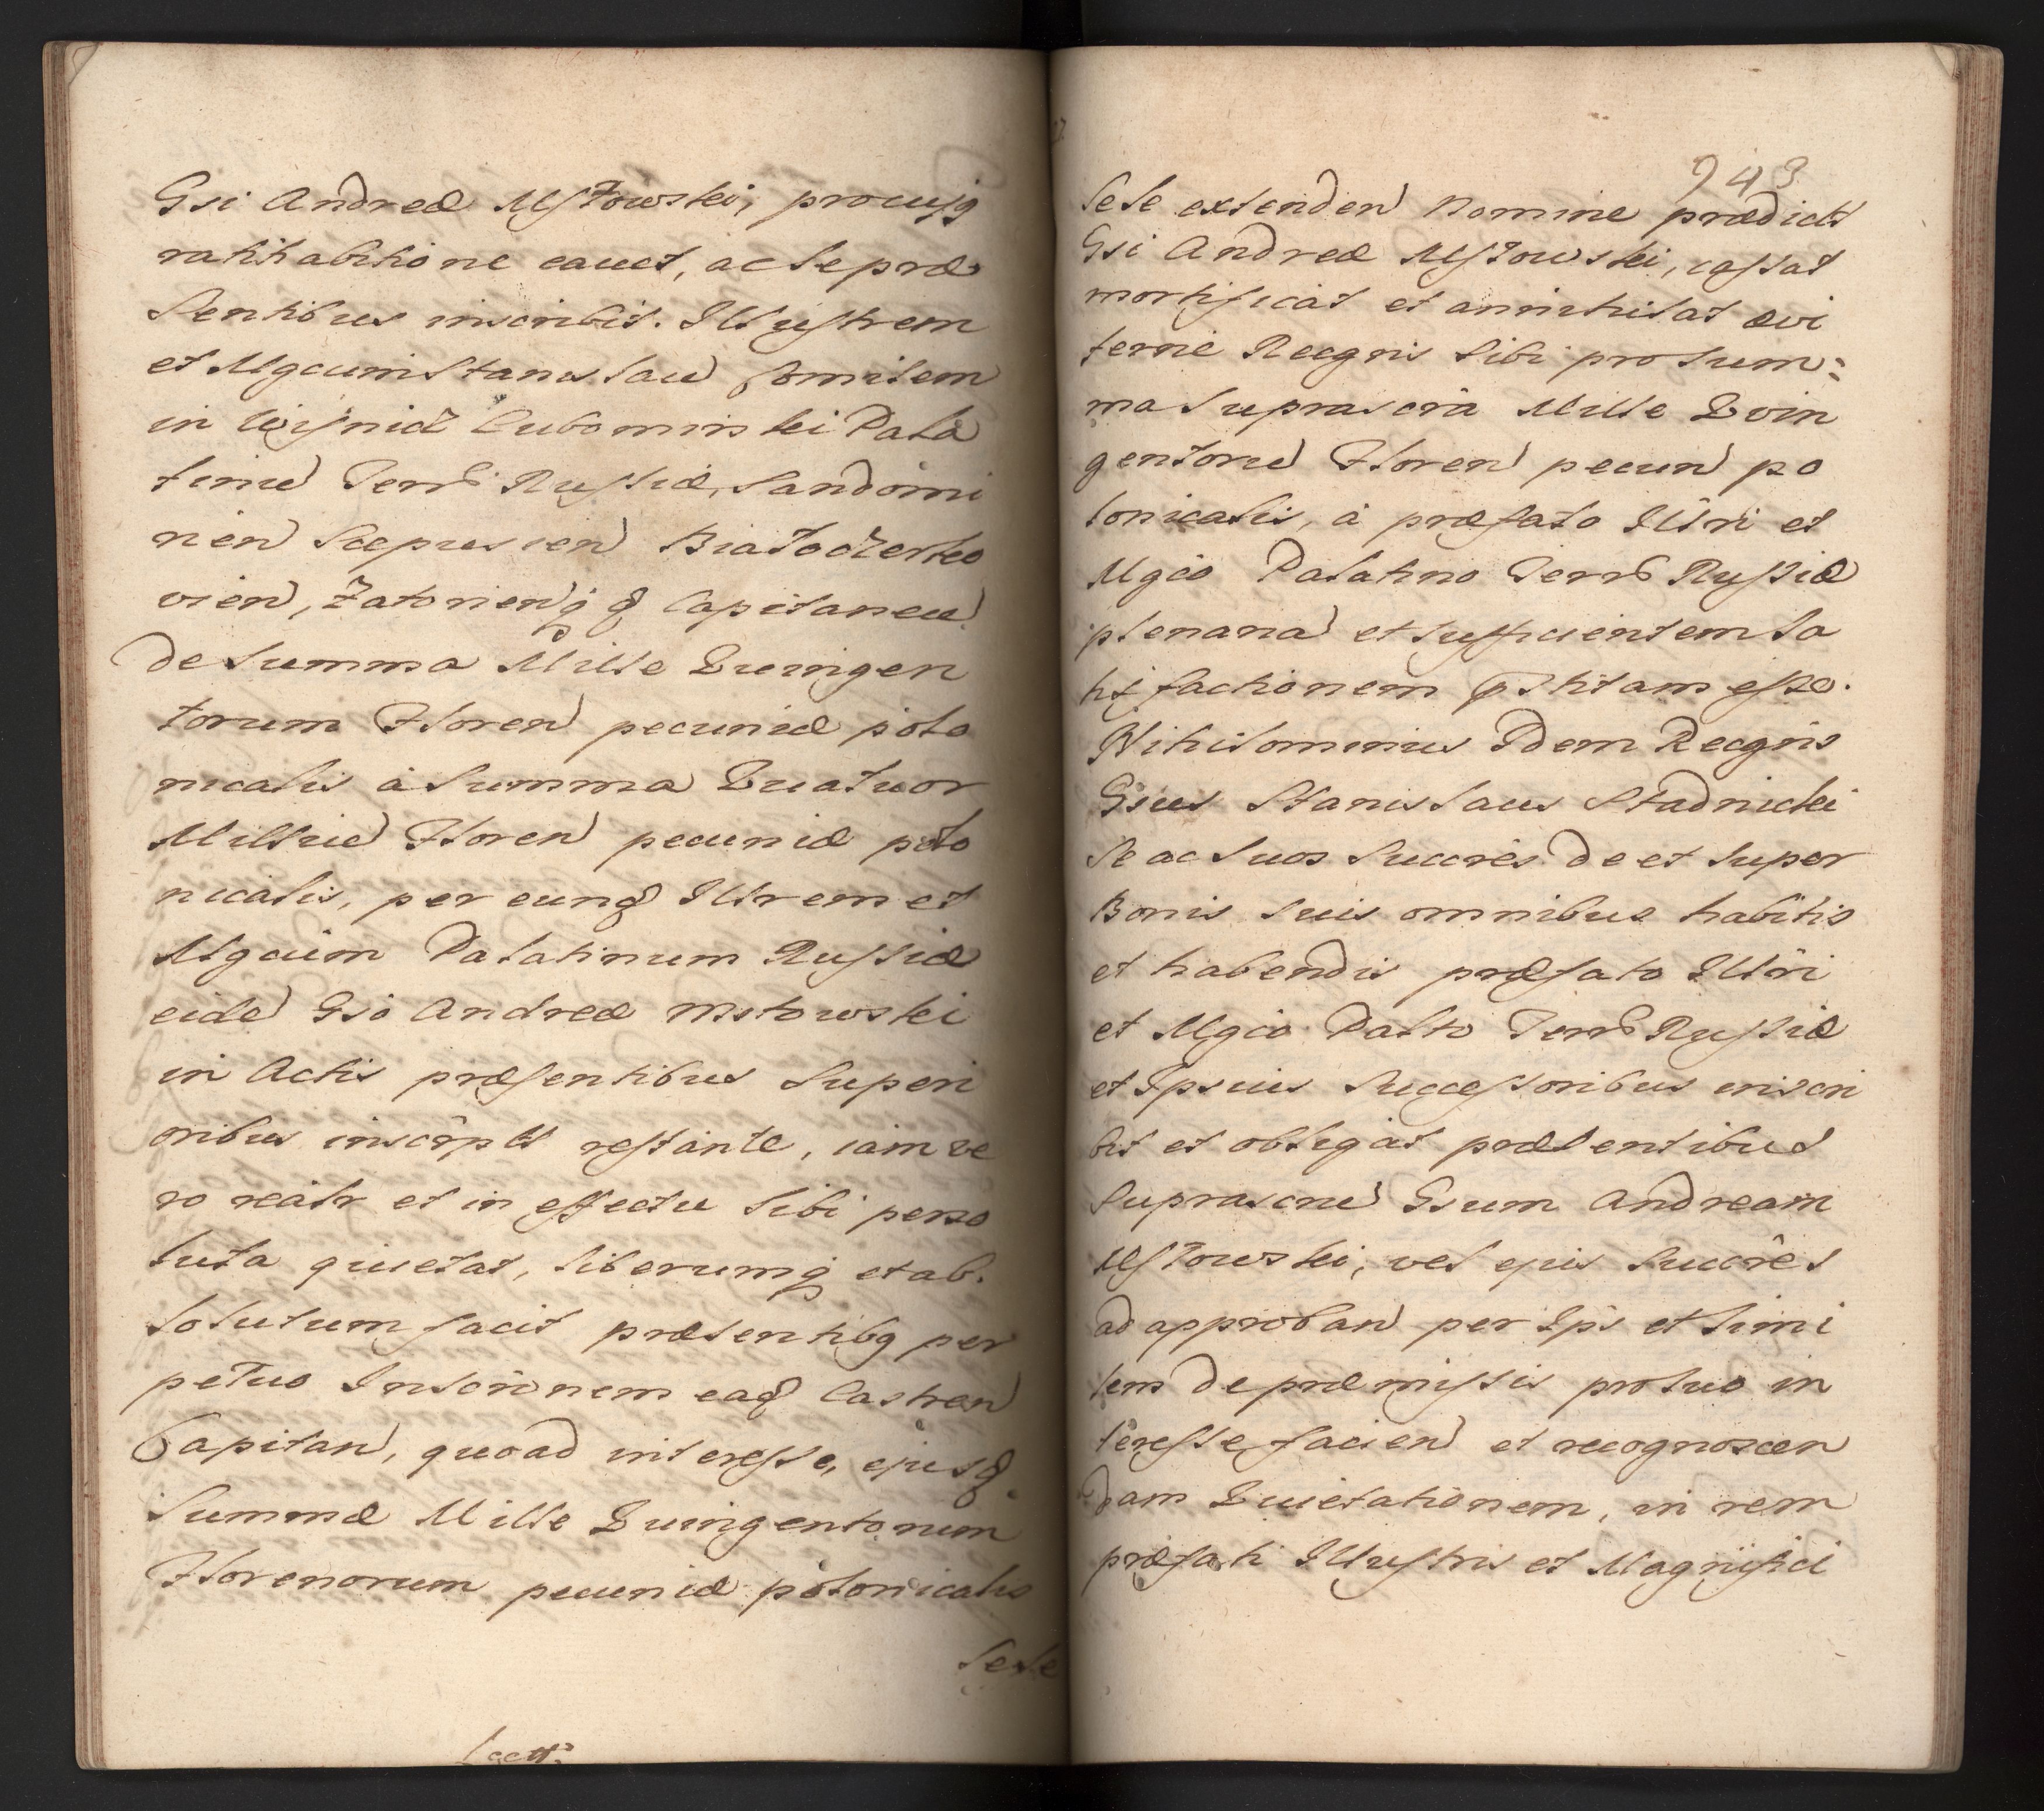 Gsi Andreæ Mstowski, pro cujq
ratihabitione cavet, ac se præ
sentibus inscribit. Illustrem
et Mgcum Stanislau Comitem
in Wisnic Lubomirski Pala
tinu Terr Russiæ, Sandomi
rien Scepusien Białocerko
vien, Zatorienq q Capitaneu
de Summa Mille Quingen
torum Floren pecuniæ polo
nicalis à Summa Quatuor
Milliu Floren pecuniæ polo
nicalis, per eunq Illrem et
Mgcum Palatinum Russiæ
eide Gso Andreæ Mstowski
in Actis præsentibus Superi
oribus inscrptt restante, iam ve
ro realr et in effectu sibi perso
luta quietat, liberumq et ab.
solutum facit præsentibq per
petuo Inscronem eaq Castren
Capitan, quoad interesse, ejusq
Summæ Mille Quingentorum
Florenorum pecuniæ polonicalis
Sese
943
Sese extenden nomine prædicti
Gsi Andreæ Mstowski, cassat
mortificat et annihilat ævi
terne Recgns sibi pro sum:
ma suprascra Mille Quin
gentoru Floren pecun po
lonicalis, à præfato Illri et
Mgco Palatino Terr Russiæ
plenaria et sufficientem sa
tisfactionem pstitam esse.
Nihilominus Idem Recgns
Gsus Stanislaus Stadnicki
Se ac Suos Succres de et super
Bonis suis omnibus habitis
et habendis præfato Illri
et Mgco Palto Terr Russiæ
et Ipsius Successoribus inscri
bit et obligat præsentibus
Suprascru Gsum Andream
Mstowski, vel ejus Succres
ad approban per Ips et simi
lem de præmissis pro suo in
teresse facien et recognoscen
dam Quietationem, in rem
præfati Illustris et Magnifici